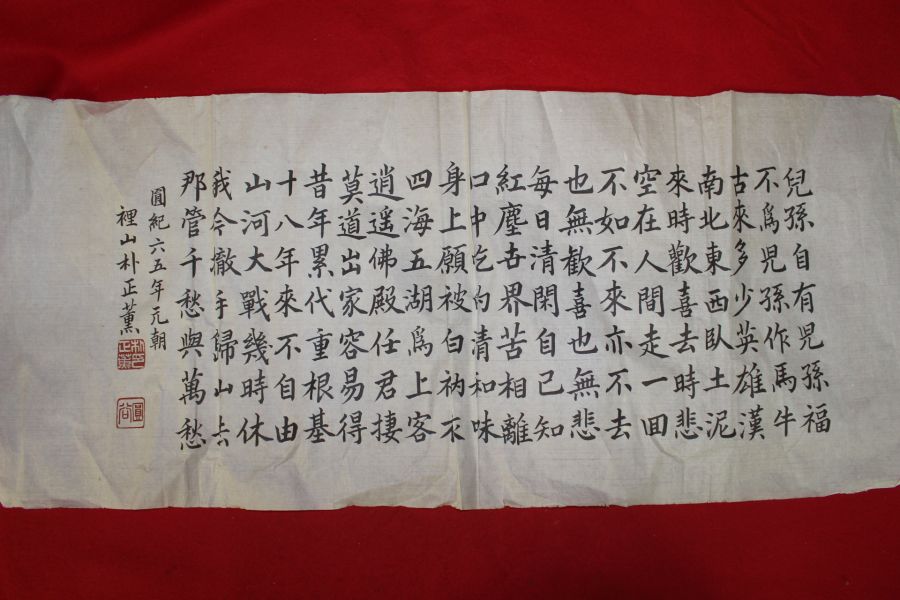 兒孫自有兒孫福
不爲兒孫作馬牛
古來多少英雄漢
南北東西臥土泥
來時歡喜去時悲
空在人間走一回
不如不來亦不去
也無歡喜也無悲
每日清閑自己知
紅塵世界苦相離
口中吃的清和味
身上願被白衲衣
四海五湖爲上客
逍遥佛殿任君捿
莫道出家容易得
昔年累代重根基
十八年來不自由
山河大戰幾時休
我今撤手歸山去
那管千愁與萬愁
圓紀六五年元朝
裡山朴正薰
圓谷